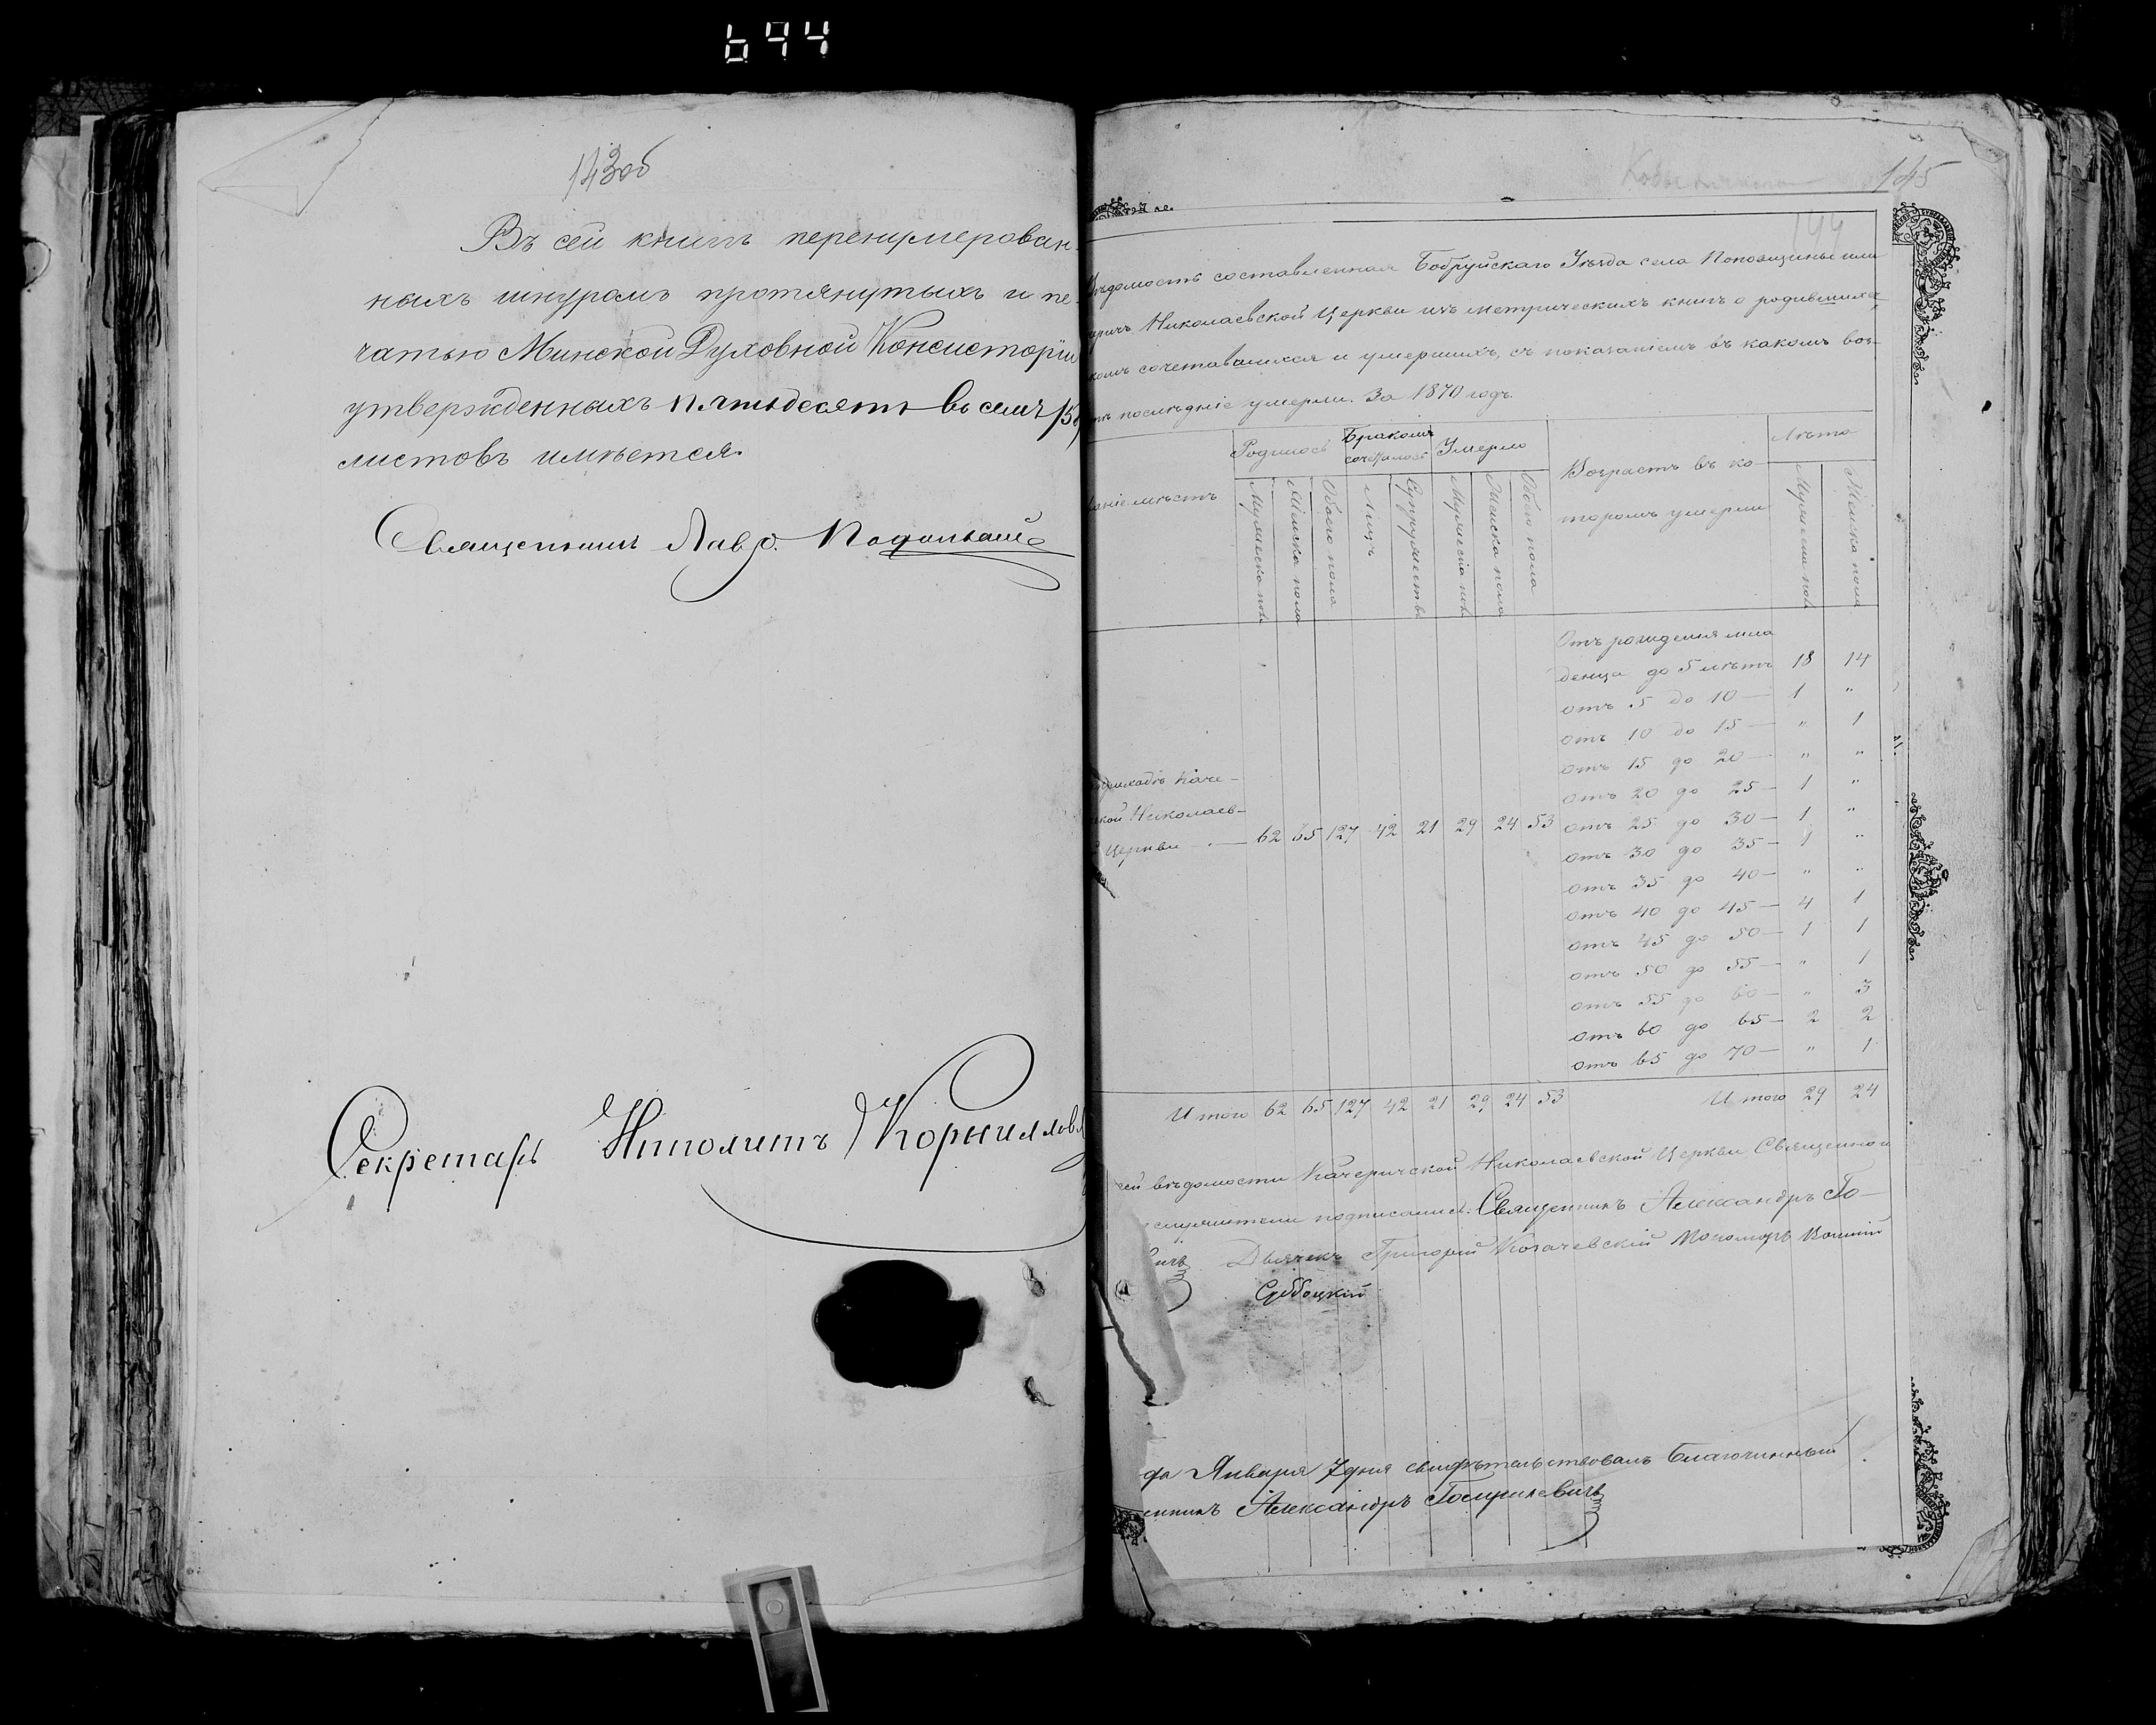 644
143об
Въ сей книгѣ перенумерован-
ныхъ шнуромъ протянутыхъ и пе-
чатью Минской Духовной Консисторiи
утвержденныхъ пятьдесятъ восемь /58/
листовъ имѣется.
Священникъ Лавр.
Секретарь Ипполитъ Корнилов
145
144
Вѣдомость составленная Бобруйскаго Уѣзда села Поповщины или
Николаевской Церкви изъ метрическихъ книгъ о родившихся
комъ сочетавшихся и умершихъ, съ показанiемъ въ какомъ воз-
послѣднiе умерли. За 1870 годъ.
Родилось Бракомъ сочеталось Умерло Возрастъ въ ко-
торомъ умерли Лѣта
ванiе мѣстъ Мужеска пола Женска пола Обоего пола Лицъ Супружествъ Мужеска пола Женска пола Обоего пола Мужеска пола Женска пола
Отъ рожденiя мла
денца до 5 лѣтъ 18 14
отъ 5 до 10 — 1 "
отъ 10 до 15 — " 1
отъ 15 до 20 — " "
отъ 20 до 25 — 1 "
отъ 25 до 30 — 1 "
отъ 30 до 35 — 1 "
отъ 35 до 40 — " "
отъ 40 до 45 — 4 1
отъ 45 до 50 — 1 1
отъ 50 до 55 — " 1
отъ 55 до 60 — " 3
отъ 60 до 65 — 2 2
отъ 65 до 70 — " 1
приходѣ Каче-
ской Николаев-
Церкви — 62 65 127 42 21 29 24 53
Итого 62 65 127 42 21 29 24 53 Итого 29 24
сей вѣдомости Качеричской Николаевской Церкви Священно
служители подписались: Священникъ Александръ Го-
вичъ Дьячекъ Григорiй Козачевскiй Пономарь
Субоцкiй
да Января 7 дня свидѣтельствовалъ Благочинный
енникъ Александръ